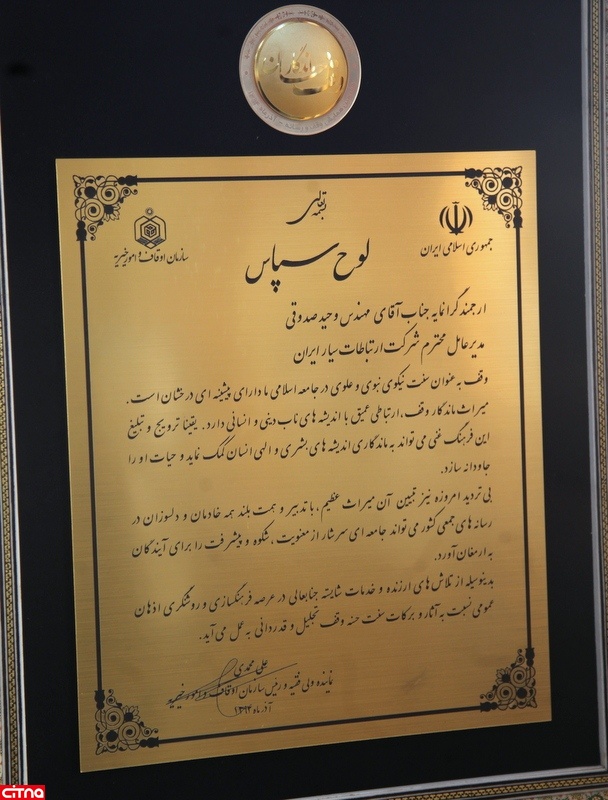 بسمه تعالی
جمهوری اسلامی ایران
سازمان اوقاف و امور خیریه
لوح سپاس
ارجمند گرانمایه جناب آقای مهندس وحید صدوقی
مدیرعامل محترم شرکت ارتباطات سیار ایران
وقف به عنوان سنت نیکوی نبوی و علوی در جامعه اسلامی ما دارای پیشینه ای درخشان است.
میراث ماندگار وقف، ارتباطی عمیق با اندیشه های ناب دینی و انسانی دارد. یقینا ترویج و تبلیغ
این فرهنگ غنی می تواند به ماندگاری اندیشه های بشری و الهی انسان کمک نماید و حیات او را
جاودانه سازد.
بی تردید امروزه نیز تبیین آن میراث عظیم، با تدبیر و همت بلند همه خادمان و دلسوزان در
رسانه های جمعی کشور می تواند جامعه ای سرشار از معنویت، شکوه و پیشرفت را برای آیندگان
به ارمغان آورد.
بدینوسیله از تلاش های ارزنده و خدمات شایسته جنابعالی در عرصه فرهنگسازی و روشنگری اذهان
عمومی نسبت به آثار و برکات سنت حسنه وقف تجلیل و قدردانی به عمل می آید.
علی محمدی
نماینده ولی فقیه و رئیس سازمان اوقاف و امور خیریه
آذر ماه ۱۳۹۴
citna